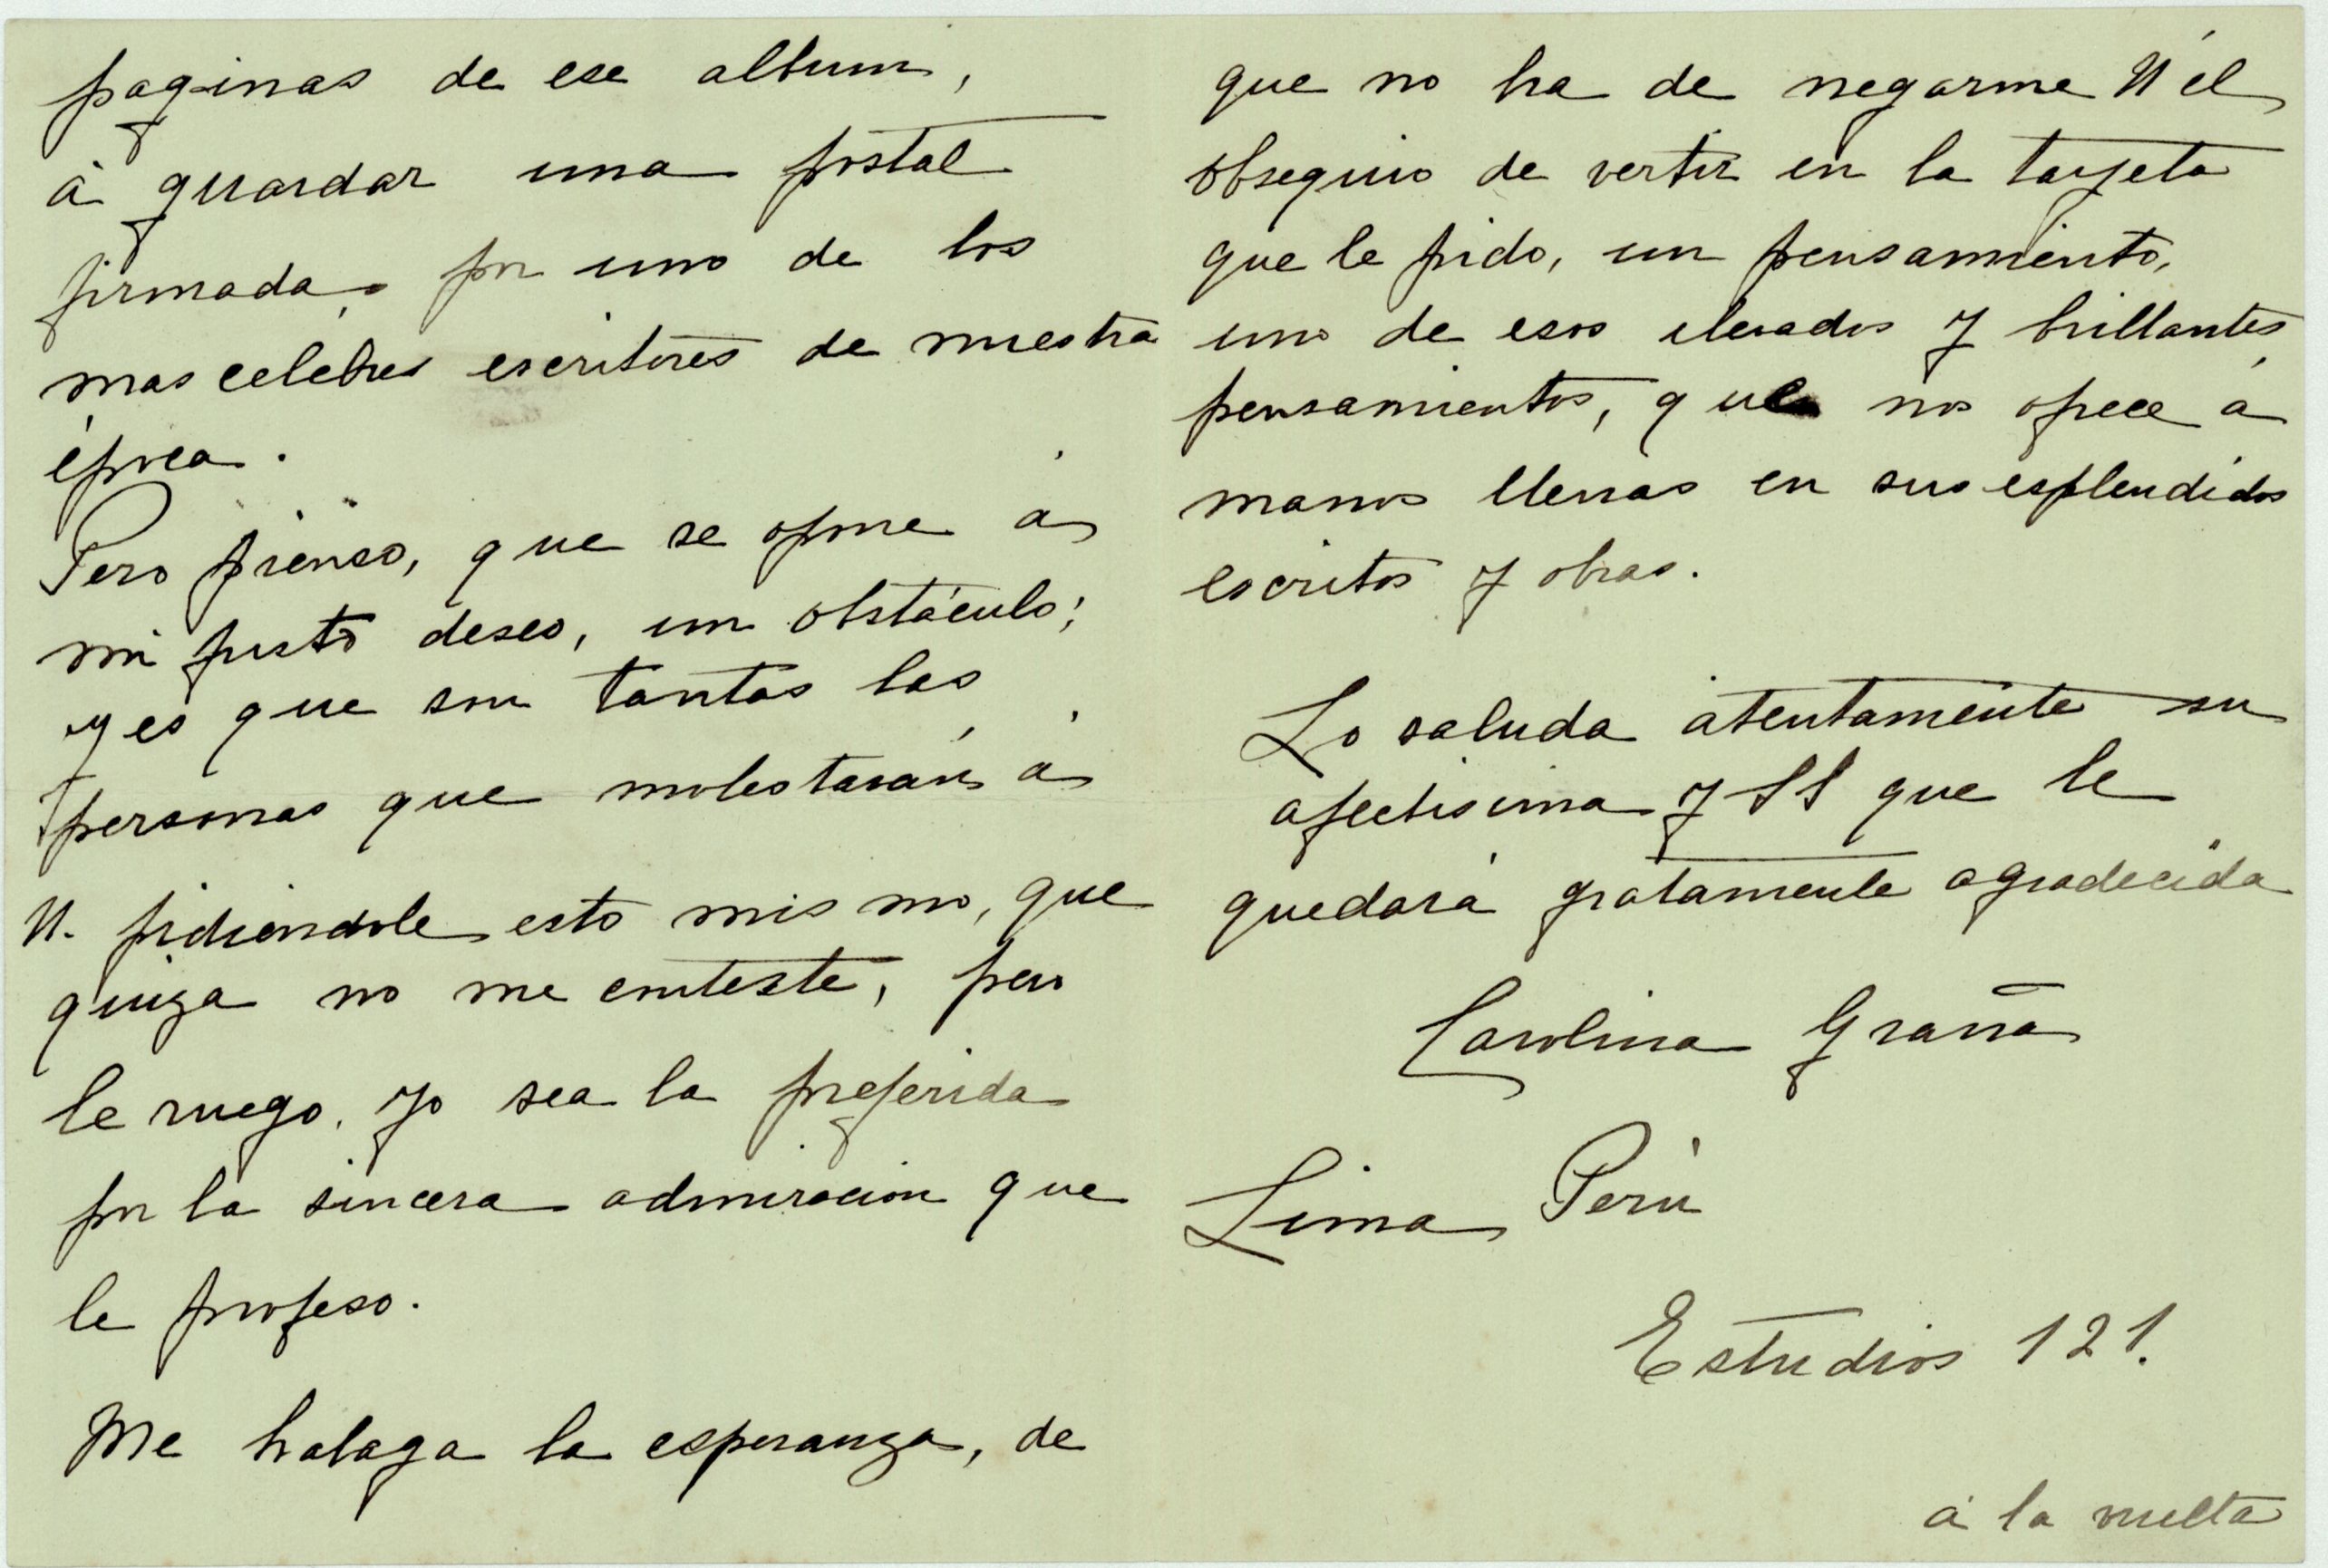 paginas de ese album,
á guardar una postal
firmada por uno de los
mas celebres escritores de nuestra
época.
Pero pienso, que se opone á
mi justo deseo, un obstáculo;
y es que son tantas las
personas que molestarán á
U. pidiéndole esto mismo, que
quiza no me conteste, pero
le ruego, yo sea la preferida
por la sincera admiracion que
le profeso.
Me halaga la esperanza, de
que no ha de negarme U el
obsequio de vertir en la tarjeta
que le pido, un pensamiento,
uno de esos elevados y brillantes
pensamientos, que nos ofrece á
manos llenas en sus esplendidos
escritos y obras.
Lo saluda atentamente su
afectisima y SS que le
quedará gratamente agradecida
Carolina Graña
Lima Perú
Estudios 121.
á la vuelta